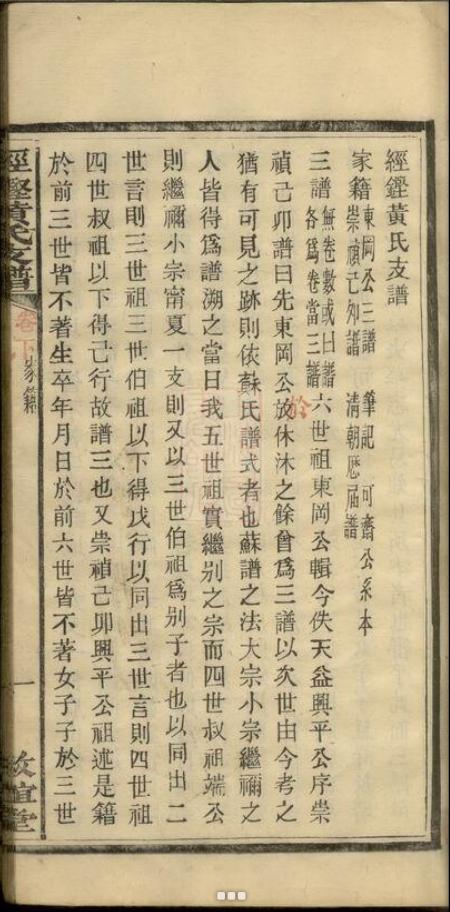 經鏗黃氏支譜
家籍 東岡公三譜 筆記 可齋公系本
崇禎己卯譜 清朝歷屆譜
三譜 無卷數或曰譜
各爲卷當三譜 六世祖東岡公輯今佚天益興平公序崇
禎己卯譜曰先東岡公放休沐之餘曾爲三譜以次世由今考之
於
猶有可見之跡則依蘇氏譜式者也蘇譜之法大宗小宗繼禰之
人皆得爲譜溯之當日我五世祖實繼別之宗而四世叔祖端公
則繼禰小宗甯夏一支則又以三世伯祖爲別子者也以同出二
世言則三世祖三世伯祖以下得戊行以同出三世言則四世祖
四世叔祖以下得己行故譜三也又崇禎己卯興平公祖述是籍
於前三世皆不著生卒年月日於前六世皆不著女子子於三世
經鏗黃氏支譜
卷下
家籍
一
敦誼堂